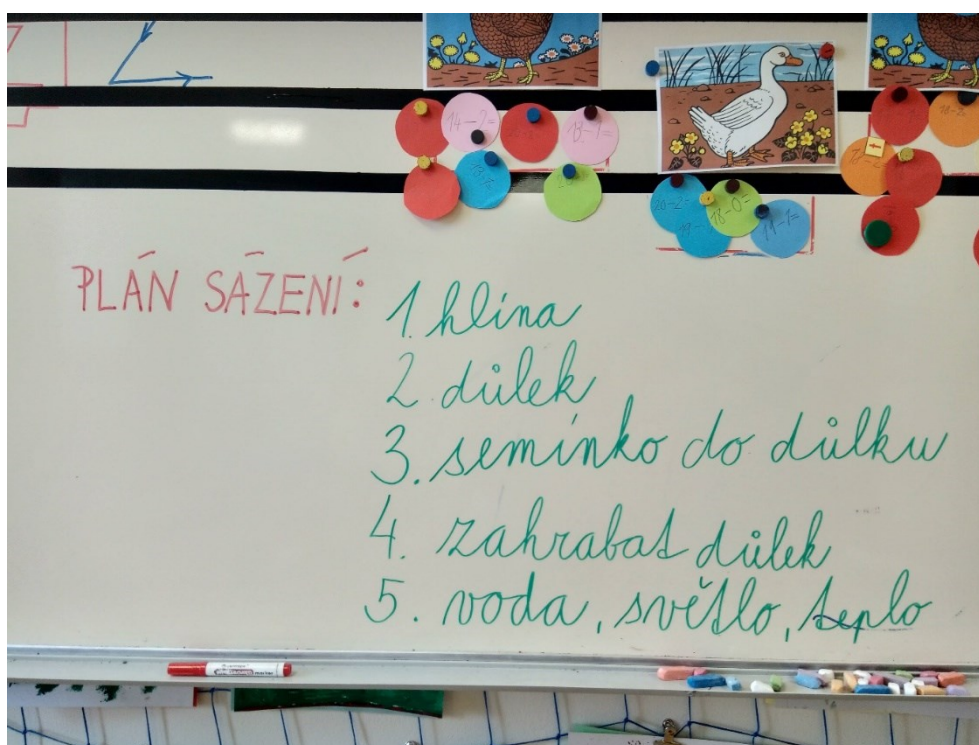 14-2=
13-1=
20-2=
18-0=
19-1=
PLÁN SÁZENÍ:
1. hlína
2. důlek
3. semínko do důlku
4. zahrabat důlek
5. voda, světlo, teplo